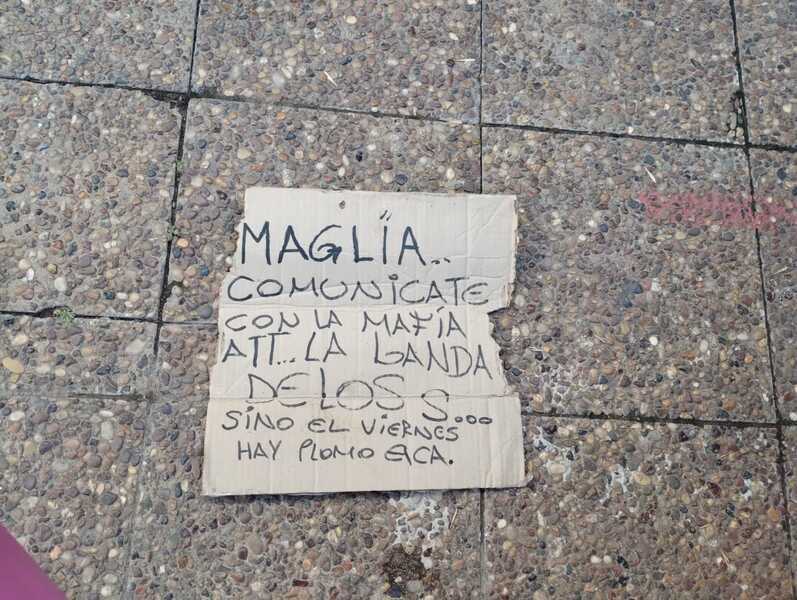 MAGLIA..
COMUNICATE
CON LA MAFÍA
ATT...LA BANDA
DE LOS S...
SINO EL VIERNES
HAY PLOMO ACA.